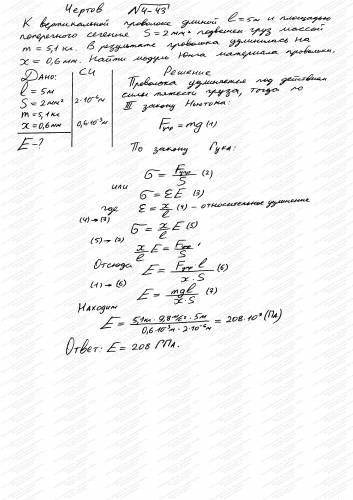 Чертов №4-43
К вертикальной проволоке длиной l=5м и площадью
поперечного сечения S=2мм² подвешен груз массой
m=5,1кг. В результате проволока удлинилась на
x=0,6мм. Найти модуль Юнга материала проволоки.
Дано: СИ Решение
l=5м
S=2мм² 2·10⁻⁶м²
m=5,1кг
x=0,6мм 0,6·10⁻³м
E-?
Проволока удлиняется под действием
силы тяжести груза, тогда по
III закону Ньютона:
Fупр=mg (1)
По закону Гука:
σ=Fупр/S (2)
или
σ=εE (3)
где ε=x/l (4) - относительное удлинение
(4)→(3)
σ=x/l E (5)
(5)→(2)
x/l E=Fупр/S,
Отсюда E=Fупр l/x·S (6)
(1)→(6)
E=mgl/x·S (7)
Находим
E=5,1кг·9,8м/с²·5м/0,6·10⁻³м·2·10⁻⁶м=208·10⁹(Па)
Ответ: E=208 ГПа.